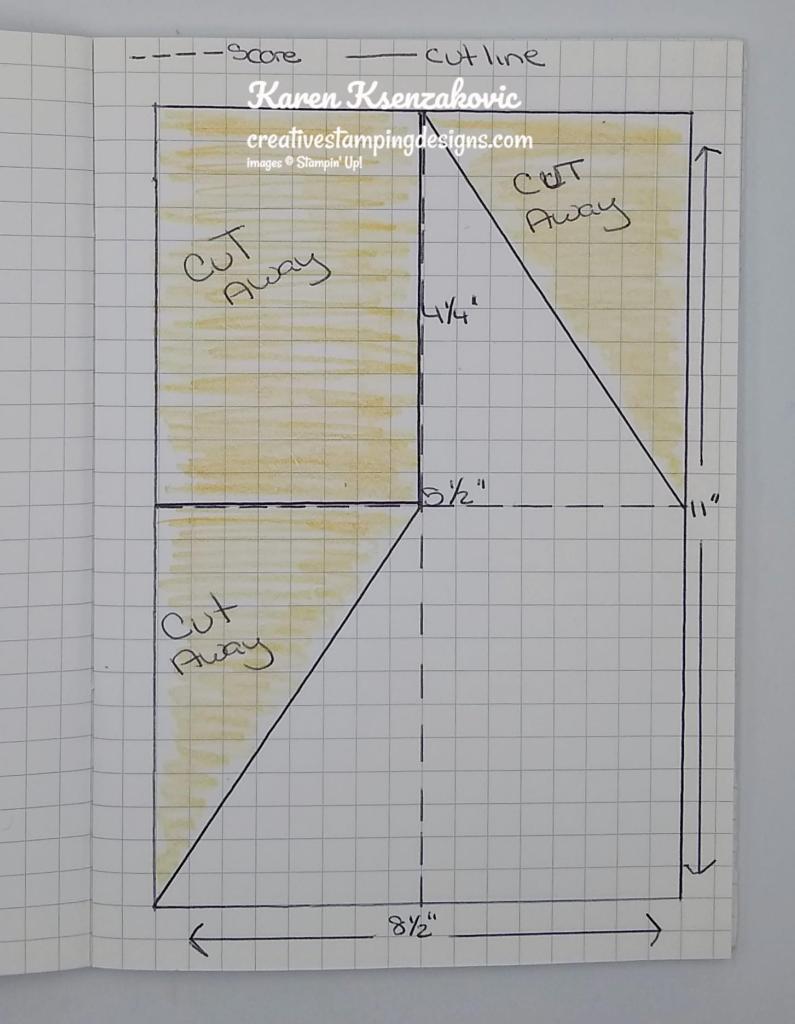 ---- Score —— Cut line
Karen Ksenzakovic
creativestampingdesigns.com
images © Stampin' Up!
CUT
Away
CuT
Away
4 1/4"
5 1/2"
11"
Cut
Away
8 1/2"